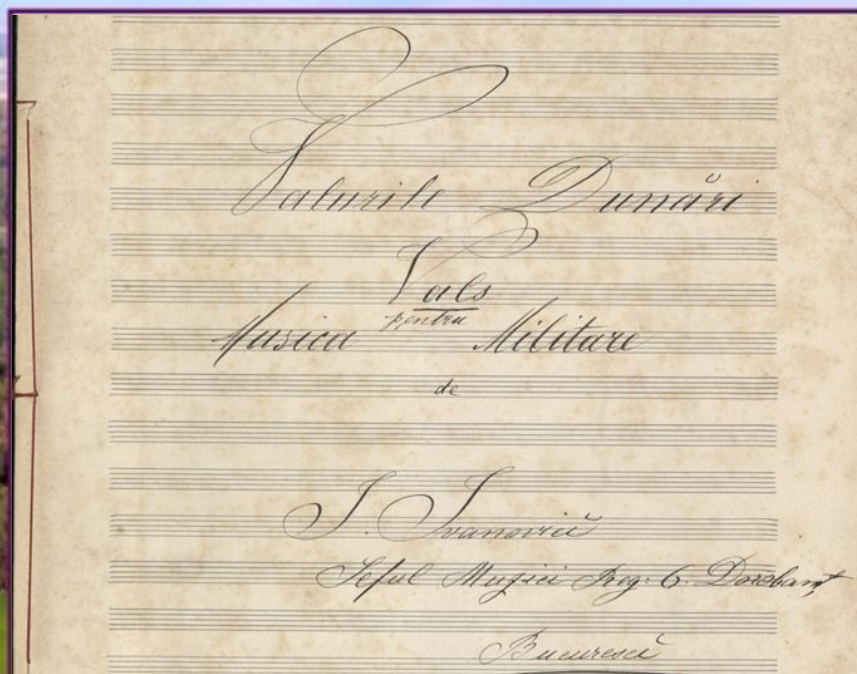 Valurile Dunări
Vals
pentru
Musica Militare
de
I. Ivanovicĭ
Șeful Muzici Reg: 6. Dorobanț
Bucurescĭ